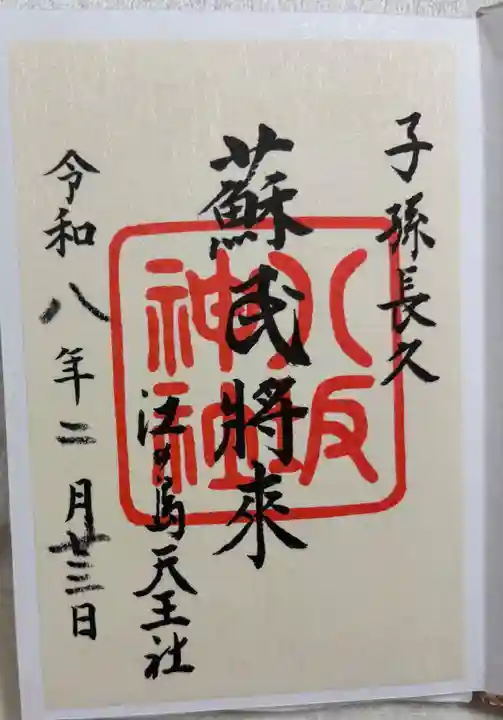 子孫長久
蘇民將來
江の島天王社
令和八年二月廿三日
八坂
神社